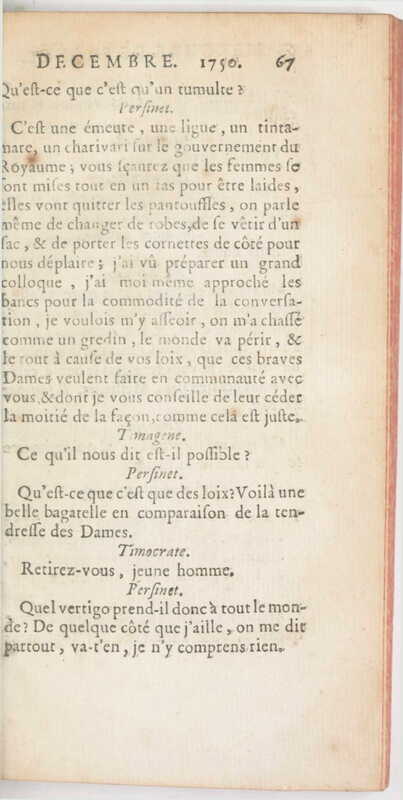 DECEMBRE. 1750. 67
Qu'est-ce que c'est qu'un tumulte?
Persinet.
C'est une émeute, une ligue, un tinta-
mare, un charivari sur le gouvernement du
Royaume; vous sçaurez que les femmes se
sont mises tout en un tas pour être laides,
elles vont quitter les pantouffles, on parle
même de changer de robes, de se vêtir d'un
sac, & de porter les cornettes de côté pour
nous déplaire; j'ai vû préparer un grand
colloque, j'ai moi même approché les
bancs pour la commodité de la conversa-
tion, je voulois m'y asseoir, on m'a chassé
comme un gredin, le monde va périr, &
le tout à cause de vos loix, que ces braves
Dames veulent faire en communauté avec
vous, & dont je vous conseille de leur céder
la moitié de la façon, comme cela est juste.
Timagene.
Ce qu'il nous dit est-il possible?
Persinet.
Qu'est-ce que c'est que des loix? Voilà une
belle bagatelle en comparaison de la ten-
dresse des Dames.
Timocrate.
Retirez-vous, jeune homme.
Persinet.
Quel vertigo prend-il donc à tout le mon-
de? De quelque côté que j'aille, on me dit
partout, va-t'en, je n'y comprens rien.